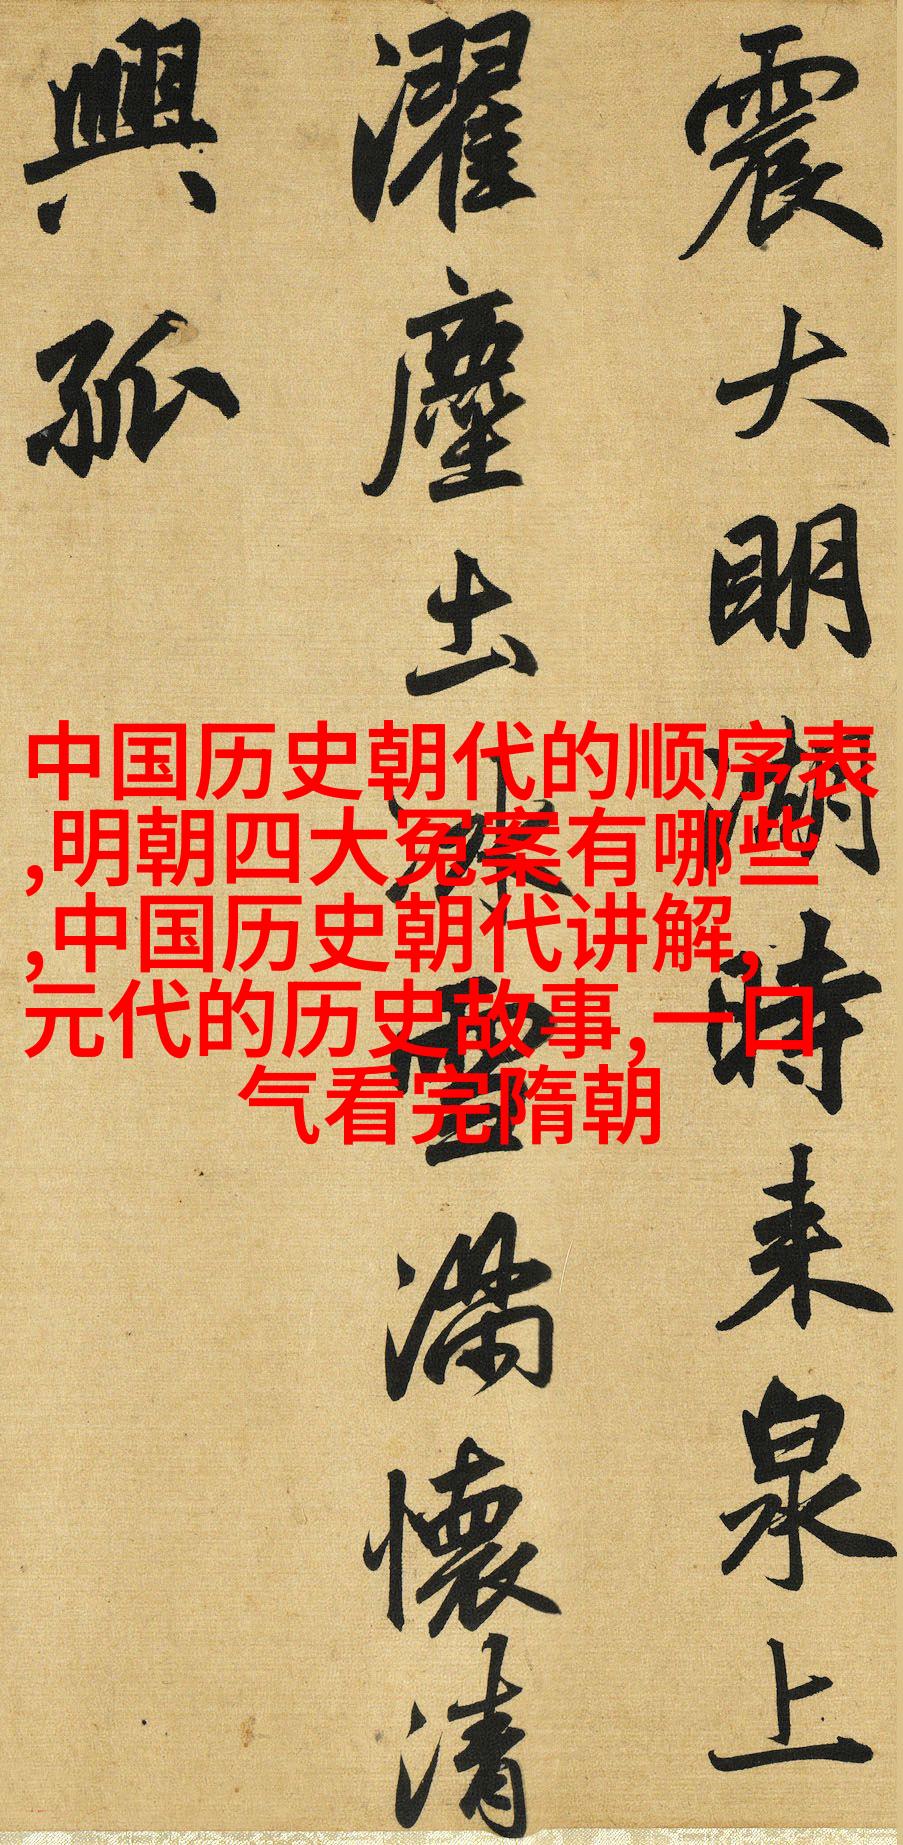 震大明湖時来泉上
濯塵出冰雪滿懷清
興孤
中国历史朝代的顺序表
,明朝四大冤案有哪些
,中国历史朝代讲解,
元代的历史故事,一口
气看完隋朝